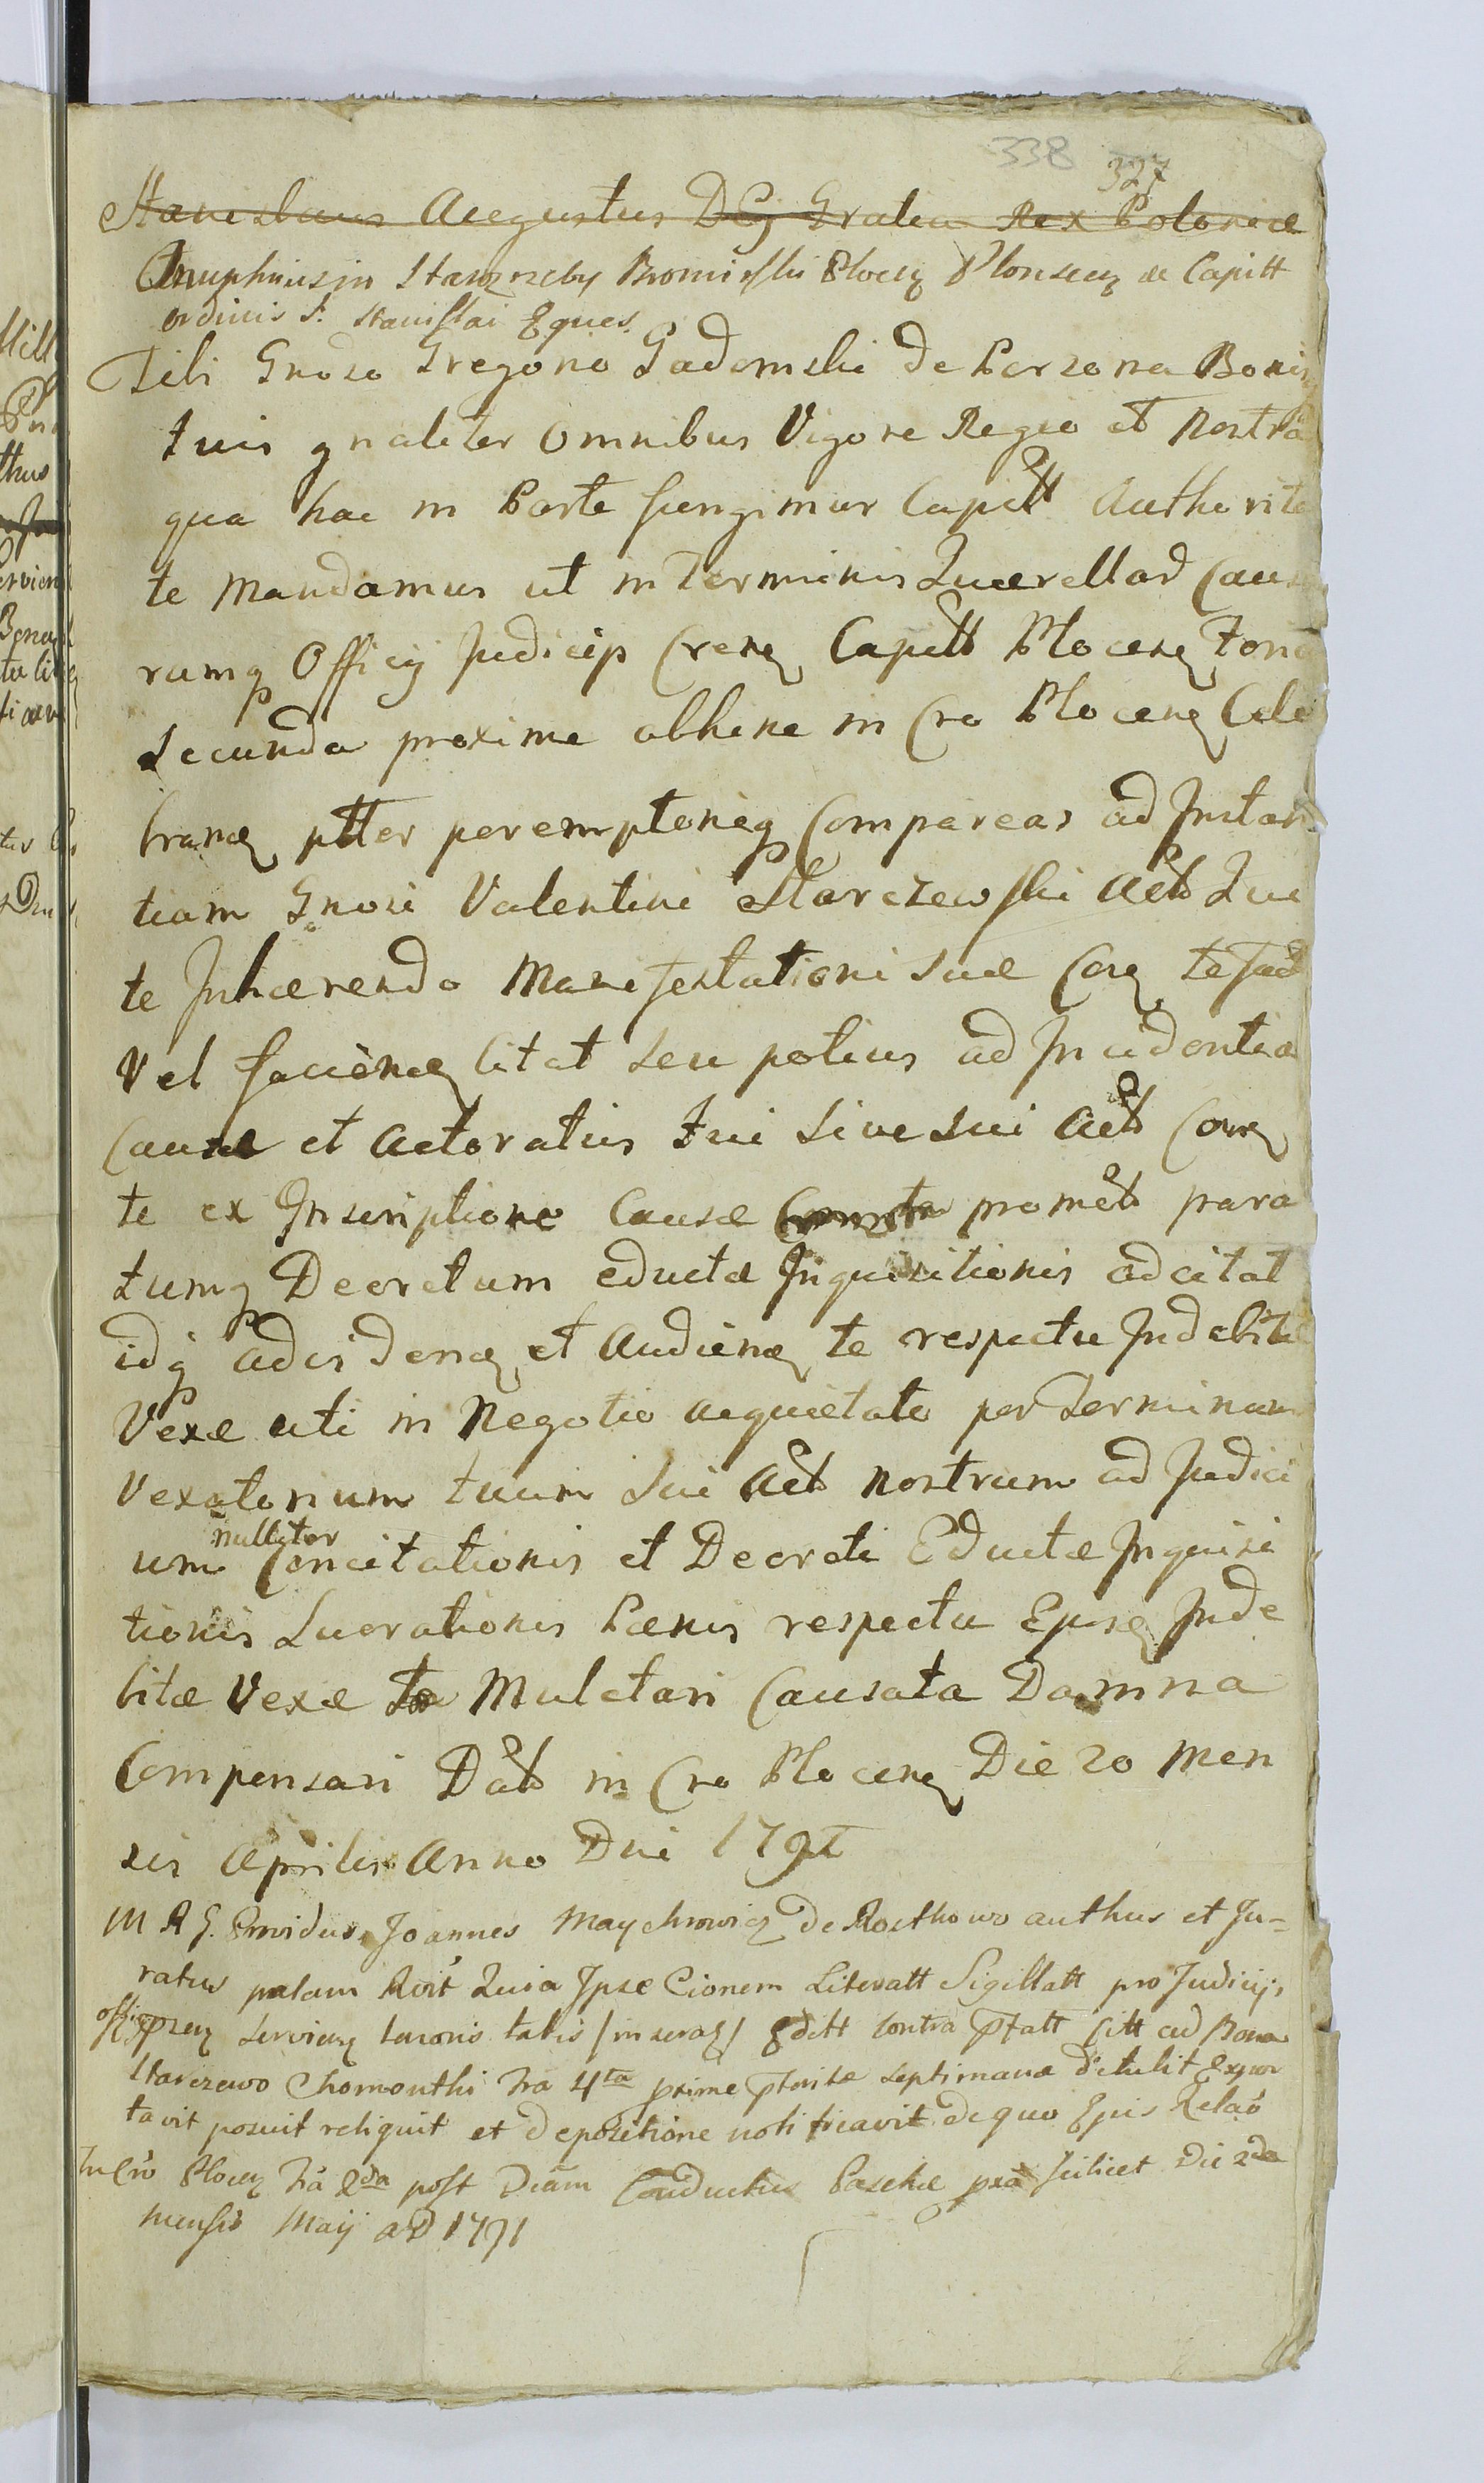 338 327
Stanislaus Augustus DEj Gratia Rex Poloniæ
Onuphrius in Starozreby Bromirski Plocen Plonscen &c Capitt
ordinis S. Stanislai Eques
Tibi Gnoso Gregorio Gadomski de Persona Bonisq
tuis gnaliter Omnibus Vigore Regio et Nostra
qua hac in Parte fungimur Capitt Authorita
te Mandamus ut in Terminis Querellar Causa
rumq Officij Judicijs Cren Capitt Plocen Feria
Secunda proxime abhinc in Cro Plocen Cele
bran ptter peremptorieq Compareas ad Instan
tiam Gnosi Valentini Starczewski Act Qui
te Inhærendo Manifestationi Suæ Con te fact
Vel facien Citat Seu potius ad Incidentia
Causæ et Actoratus Tui Sive Sui Act Con
te ex Inscriptione Causæ promot para
tumq Decretum eductæ Inquisitionis adcitat
idq ad Viden et Audien te respectu Indebitæ
Vexæ uti in Negotio Acquietato per Terminum
Vexatorium tuum Sui Act Nostrum ad Judici
um nulliter Concitationis et Decreti Eductæ Inquisi
tionis Lucrationis Pænis respectu Ejusq Inde
bitæ Vexæ te Mulctari Causata Damna
Compensari Dat in Cro Plocen Die 20 Men
sis Aprilis Anno Dni 1791
M R G. Providus Joannes Maychrowicz De Rosthowo authus et Ju-
ratus palam Roit Quia Ipse Cionem Literatt Sigillatt pro Judicijs
offi pren Servien tenoris talis /inserat/ Edett contra Ptatt Citt ad Bona
Starczewo Chomonthi fra 4ta prime pterite septimanæ detulit Expor
tavit posuit reliquit et depositione notificavit de quo Ejus Relaõ
In Cro Plocen fra 2da post Diãm Conductus Paschæ scilicet Die 2da
mensis Maij A D 1791